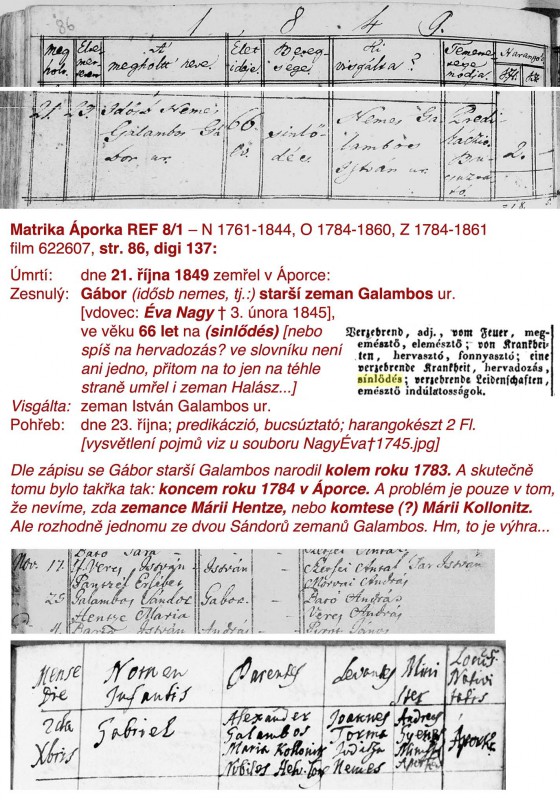 86
1 8 4 9.
meg holt.
Elte-
mer-
A'
megholtt neve.
Élet
ideje.
Beteg-
sége.
Ki
vizsgálta?
Temetes-
sége
módja.
Harangoz.
Rft.
Xr.
21. 23. Idősb Nemes
Galambos Gá-
bor ur.
66.
sinlő-
dés.
Nemes Ga-
lambos
István ur.
Predi-
káczio.
Bu-
csuzta-
tó.
2.
Matrika Áporka REF 8/1 – N 1761-1844, O 1784-1860, Z 1784-1861
film 622607, str. 86, digi 137:
Úmrtí: dne 21. října 1849 zemřel v Áporce:
Zesnulý: Gábor (idősb nemes, tj.:) starší zeman Galambos ur.
[vdovec: Éva Nagy † 3. února 1845],
ve věku 66 let na (sinlődés) [nebo
spíš na hervadozás? ve slovníku není
ani jedno, přitom na to jen na téhle
straně umřel i zeman Halász...]
Verzehrend, adj., vom Feuer, meg-
emésztő, elemésztő; von Krankhei-
ten, hervasztó, fonnyasztó; eine
verzehrende Krankheit, hervadozás,
sínlődés; verzehrende Leidenschaften,
emésztő indúlatosságok.
Visgálta: zeman István Galambos ur.
Pohřeb: dne 23. října; predikáczió, bucsúztató; harangokészt 2 Fl.
[vysvětlení pojmů viz u souboru NagyÉva†1745.jpg]
Dle zápisu se Gábor starší Galambos narodil kolem roku 1783. A skutečně
tomu bylo takřka tak: koncem roku 1784 v Áporce. A problém je pouze v tom,
že nevíme, zda zemance Márii Hentze, nebo komtese (?) Márii Kollonitz.
Ale rozhodně jednomu ze dvou Sándorů zemanů Galambos. Hm, to je výhra...
Nov. 17. Veres István István
Pantzél Ersébet Morvai András
29 Galambos Sándor Gabor. Baró András
Hentze Maria Veres András
4 István András János
Mense
Die
Nomen
Infantis
Parentes
Levantes
Mini
ster
Locus
Nativi
tatis
2da
Xbris
Gabriel
Alexander
Galambos
Maria Kollonitz
Nobiles Helv. Conf
Joannes
Torma
Juditha
Nemes
Andreas
Gyenes
Minister
Aporken
Áporka